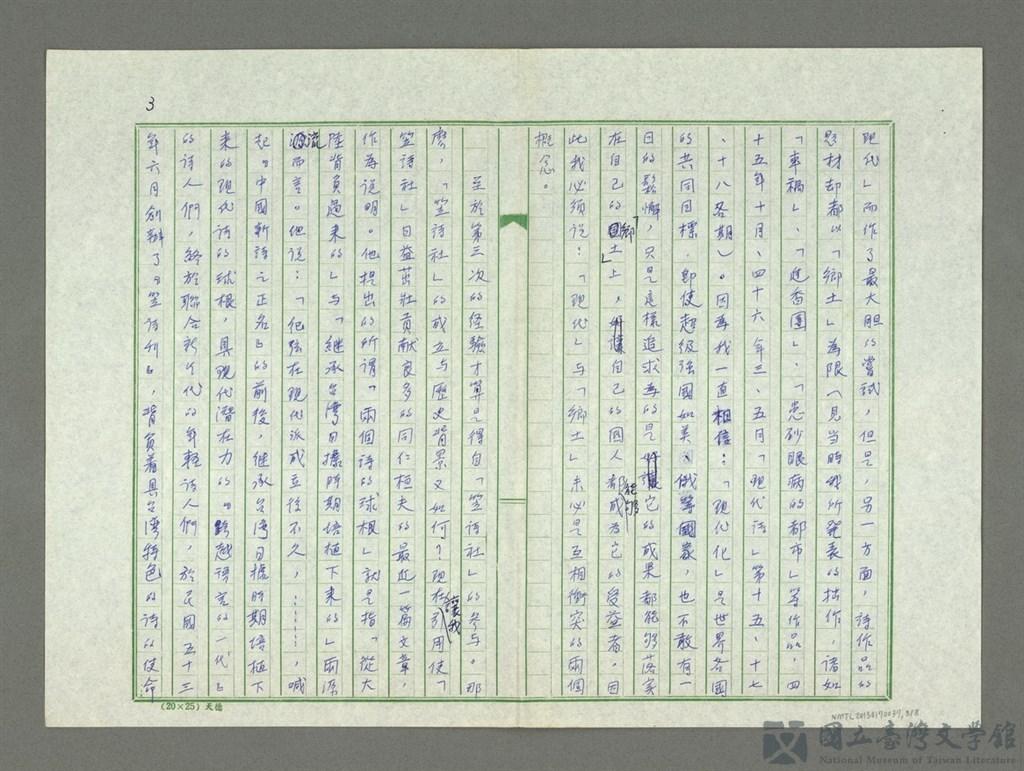 3
現代」而作了最大胆的嘗試，但是，另一方面，詩作品的
題材却都以「鄉土」為限（見當時我所発表的拙作，諸如
「車禍」、「進香團」、「患砂眼病的都市」等作品，四
十五年十月、四十六年三、五月「現代詩」第十五、十七
、十八各期）。因為我一直相信：「現代化」是世界各國
的共同目標，即使超級強國如美、俄等國家，也不敢有一
日的鬆懈，只是這樣追求為的是讓它的成果都能够落實
在自己的「鄉土」上，自己的國人都能够成為它的受益者。因
此我必須說：「現代」与「鄉土」未必是互相衝突的兩個
概念。
至於第三次的経驗才算是得自「笠詩社」的参与。那
麼，「笠詩社」的成立与歷史背景又如何？現在讓我引用使「
笠詩社」日益茁壯貢献良多的同仁桓夫的最近一篇文章，
作為說明。他提出的所謂「兩個詩的球根」就是指「從大
陸背負過來的」与「継承台湾日據時期培植下來的」兩源
流而言。他說：「紀弦在現代派成立後不久，……，喊
起『中國新詩之正名』的前後，継承台湾日據時期培植下
来的現代詩的球根，具現代潛在力的『跨越語言的一代』
的詩人們，終於聯合新世代的年輕詩人們，於民國五十三
年六月創辦了『笠詩刊』，背負着具台湾特色的詩的使命
(20×25) 天德
NMTL20150170037,3/8
國立臺灣文學館
National Museum of Taiwan Literature